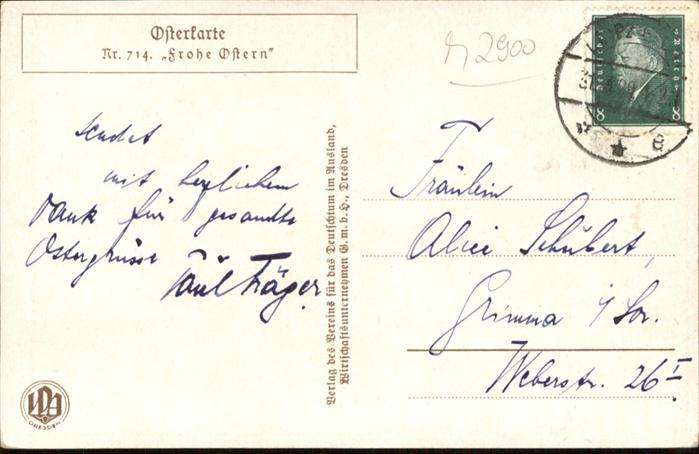 Osterkarte
Nr. 714. „Frohe Ostern"
2900
Deutsches Reich
8 8
sendet
mit herzlichem
Dank für gesandte
Ostergrüsse Paul Träger
Verlag des Vereins für das Deutschtum im Ausland,
Wirtschaftsunternehmen G. m. b. H., Dresden
Fräulein
Alice Schubert,
Grimma i/Sa.
Weberstr. 26 I
VDA
DRESDEN